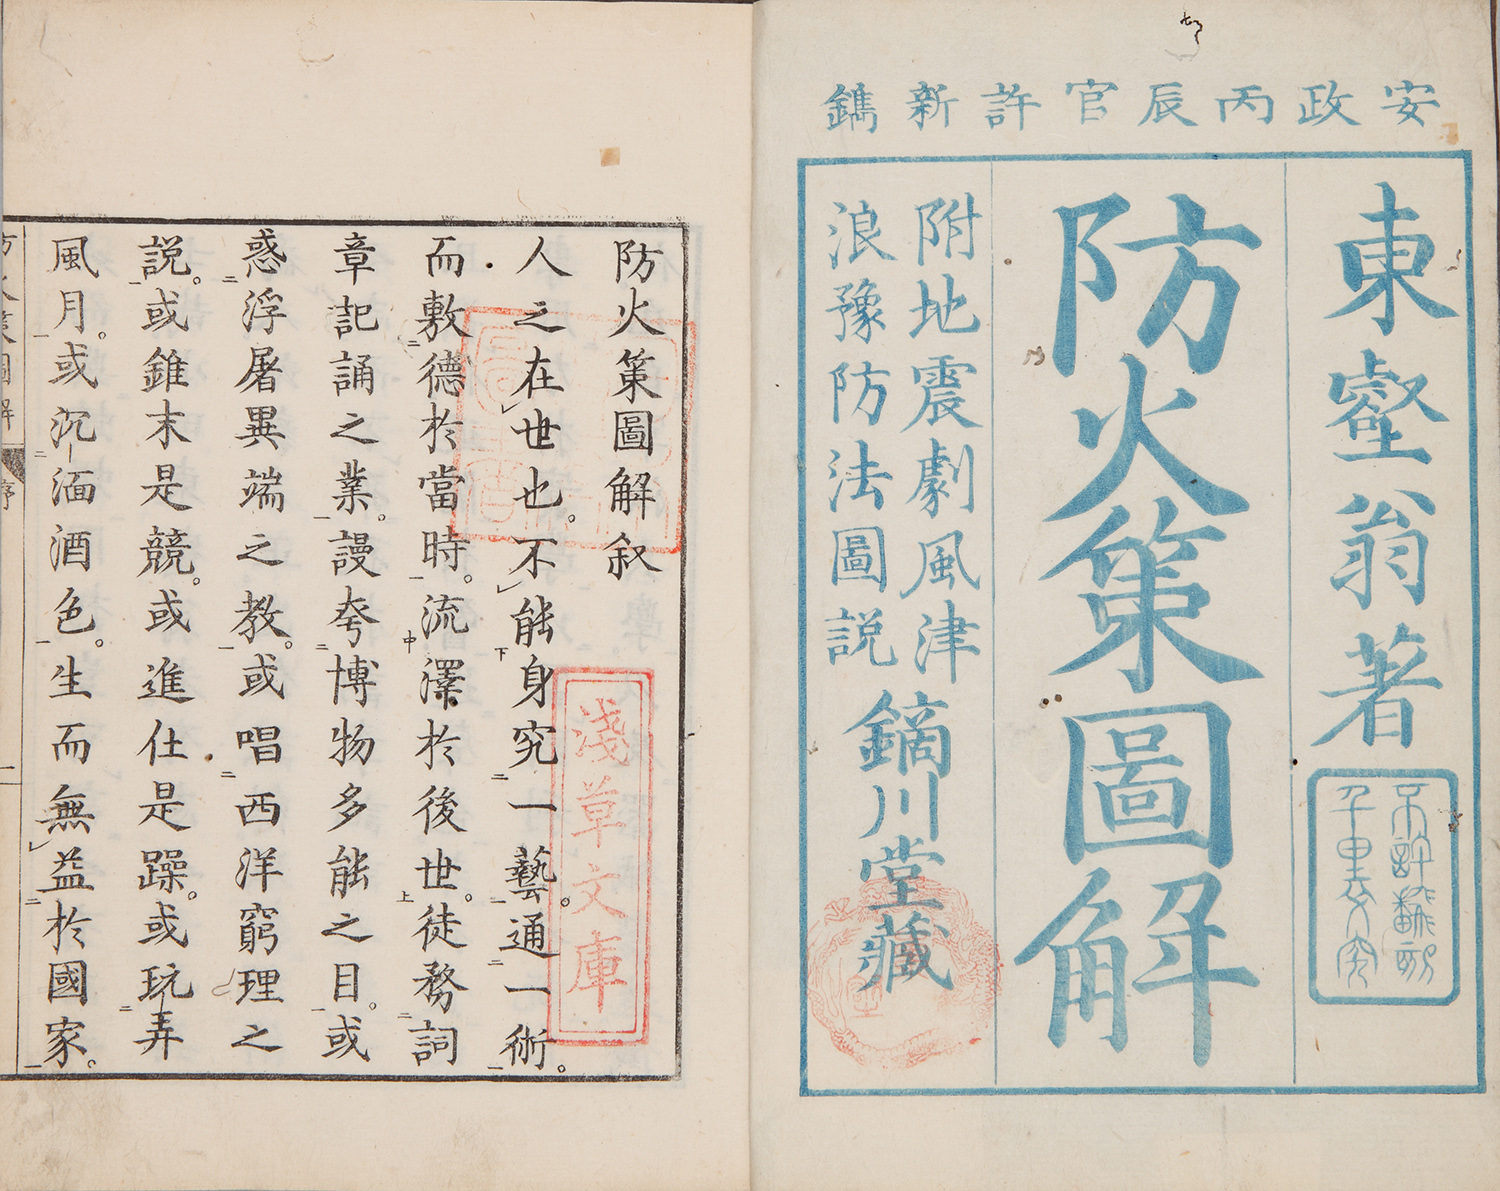 安政丙辰官許新鐫
東壑翁著
不許翻刻
千里必究
防火策圖解
附地震劇風津
浪豫防法圖説
鏑川堂藏
防火策圖解叙
人之在世也。不能身究一藝。通一術。
而敷德於當時。流澤於後世。徒務詞
章記誦之業。謾夸博物多能之目。或
惑浮屠異端之教。或唱西洋窮理之
説。或錐末是競。或進仕是躁。或玩弄
風月。或沉湎酒色。生而無益於國家。
淺草文庫